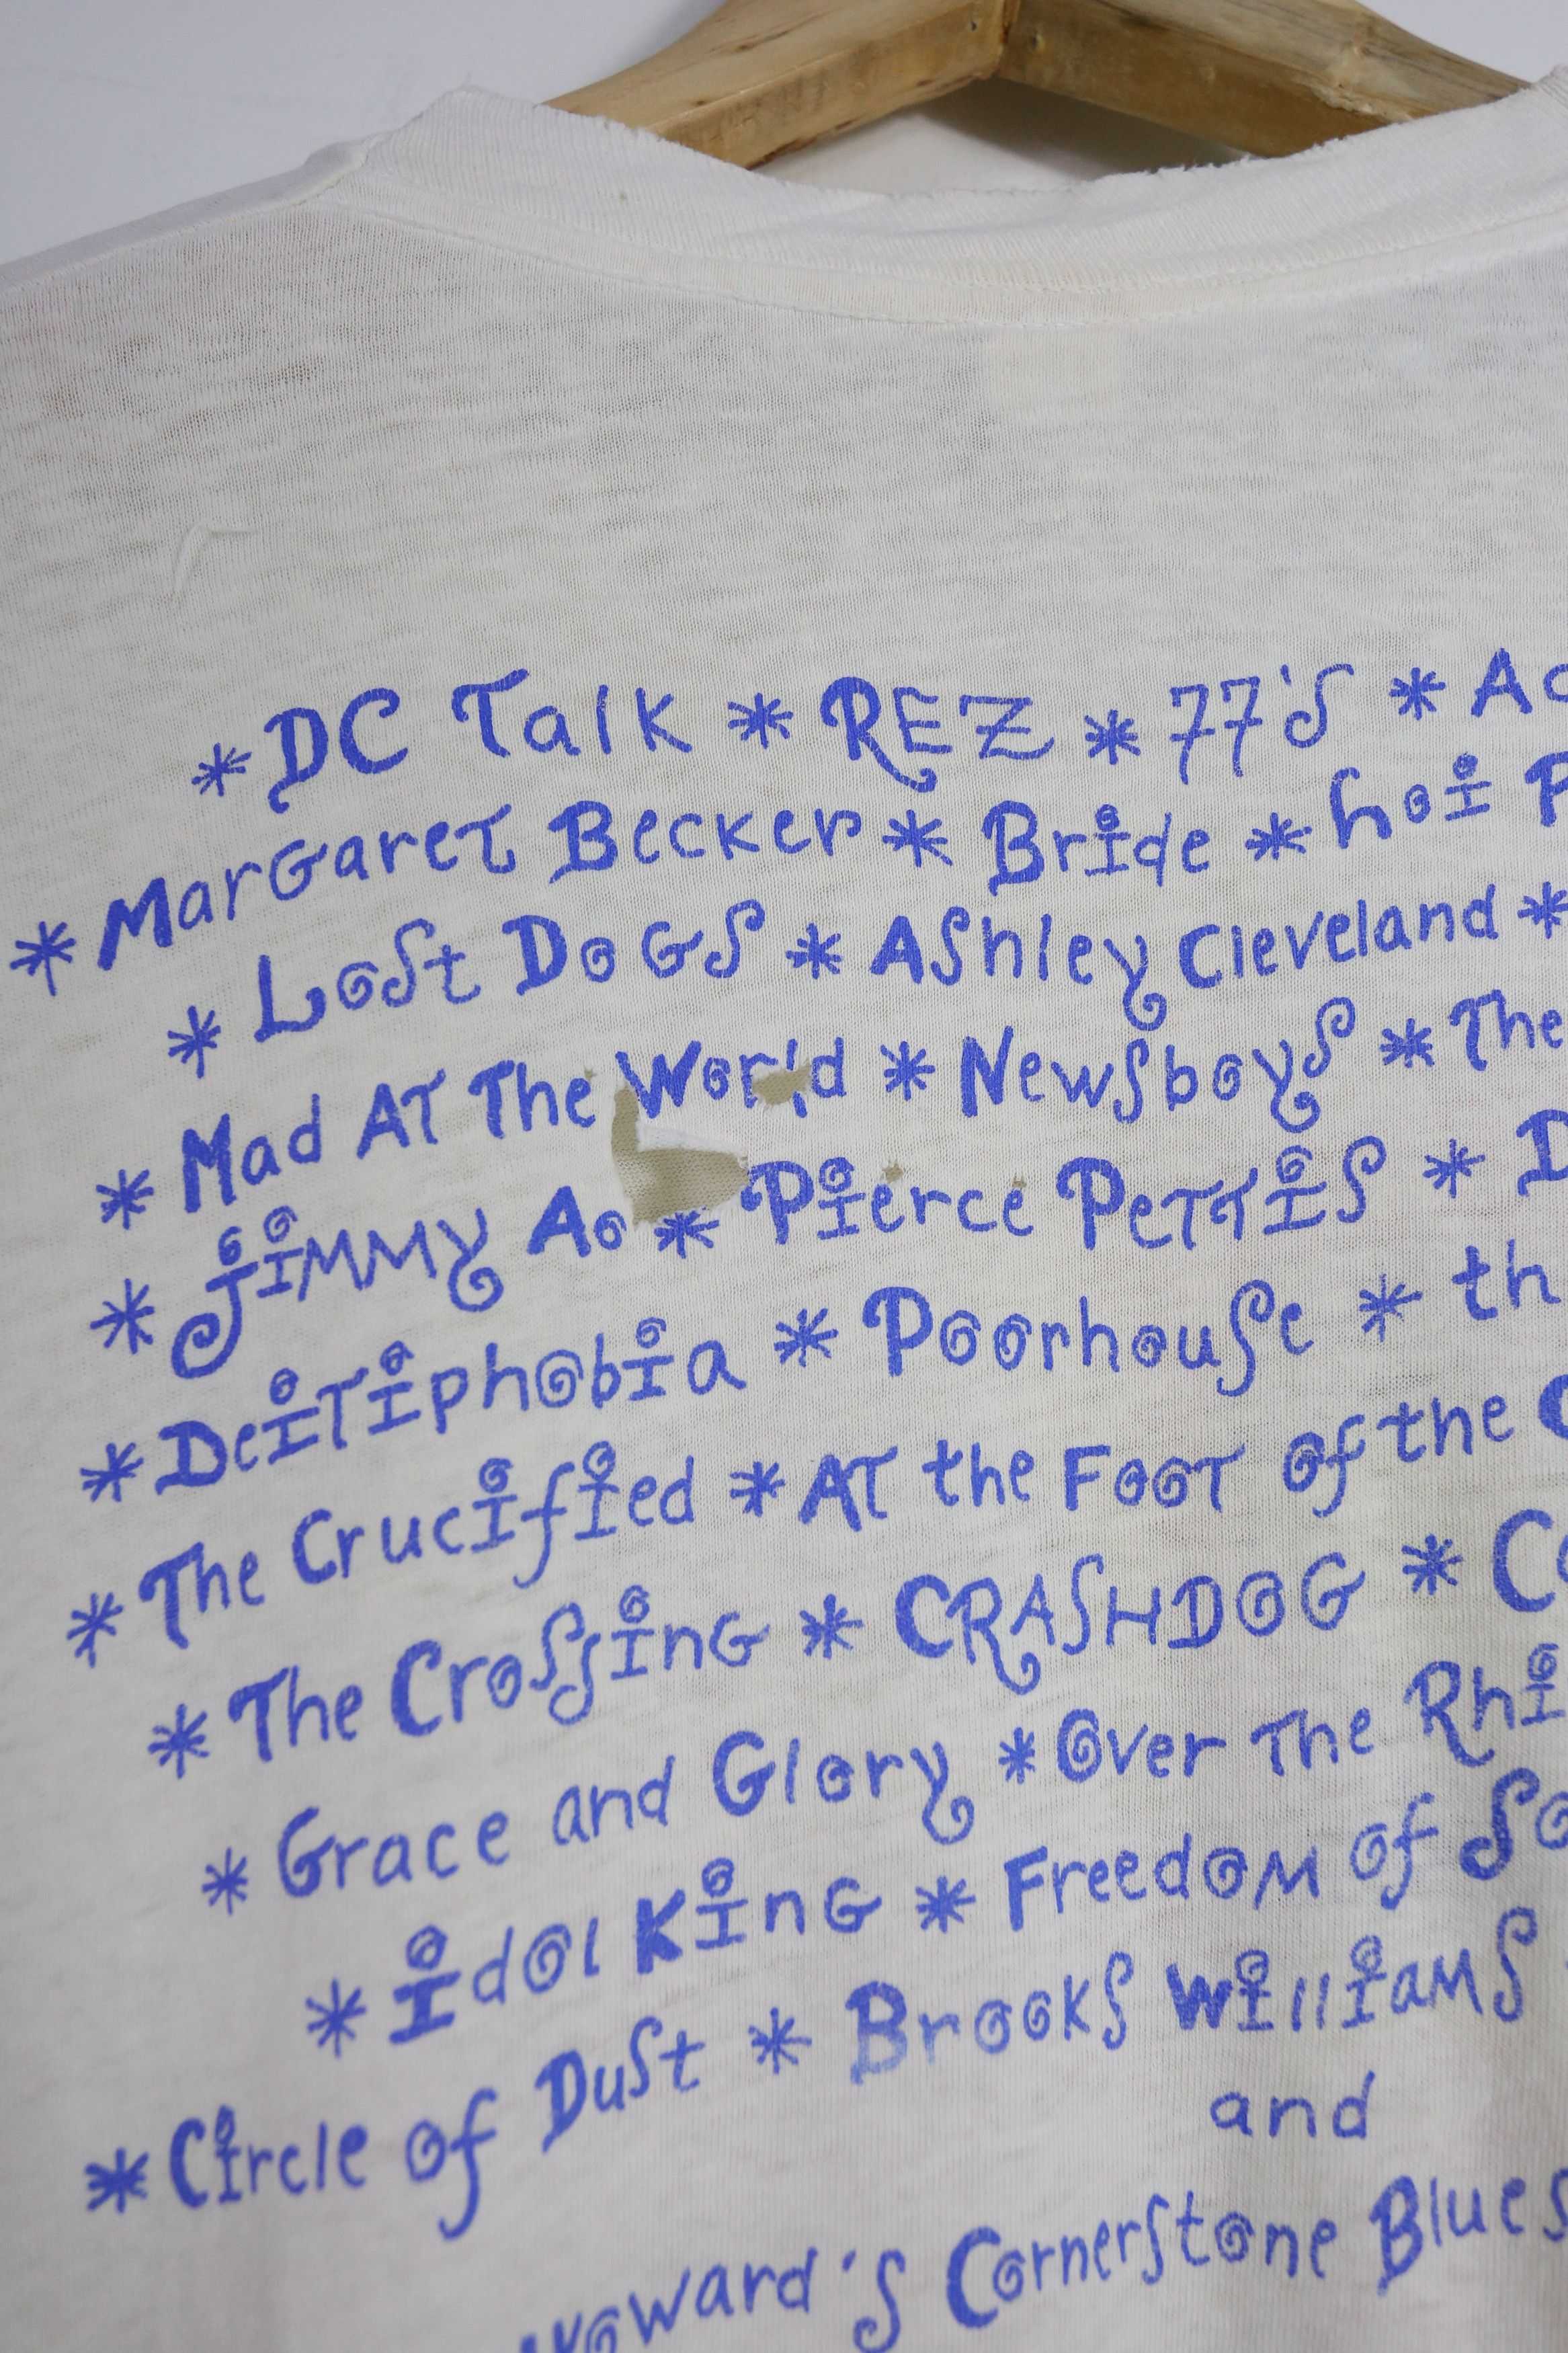 * DC Talk * REZ * 77's *
* Margaret Becker * Bride * hoi
* Lost Dogs * Ashley Cleveland *
* Mad At The World * Newsboys * The
* Jimmy A * Pierce Pettis *
* Deitiphobia * Poorhouse *
* The Crucified * At the Foot of the
* The Crossing * CRASHDOG *
* Grace and Glory * Over The
* Idol King * Freedom of
* Circle of Dust * Brooks Williams
and
Cornerstone Blues